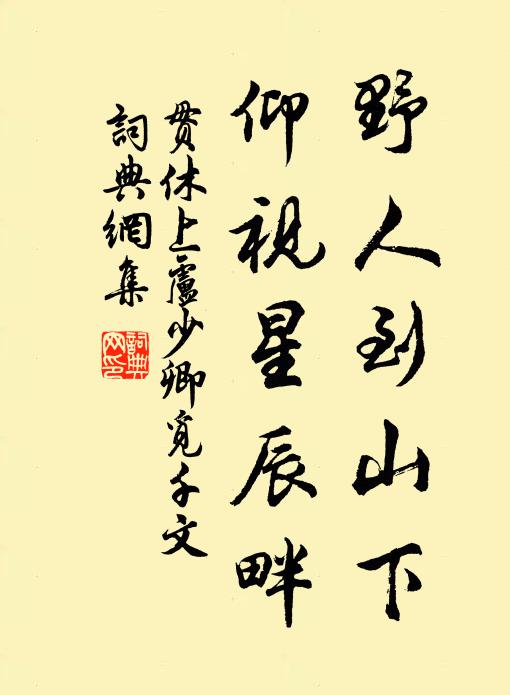 野人到山下
仰視星辰畔
貫休上盧少卿覓千文
詞典網集
詞典
网印